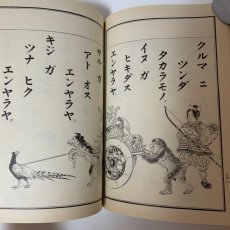 クルマ ニ
ツンダ
タカラモノ、
イヌ ガ
ヒキダス
エンヤラヤ。
サル ガ
アト オス
エンヤラヤ。
キジ ガ
ツナ ヒク
エンヤラヤ。